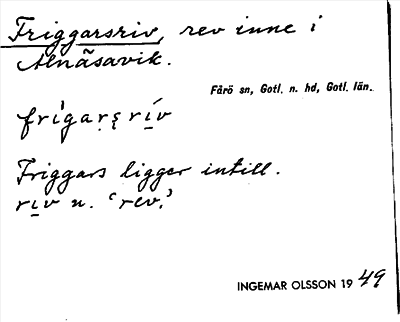 Friggarsriv, rev inne i
Alnäsavik.
Fårö sn, Gotl. n. hd, Gotl. län.
Friggars ligger intill.
rı̲v n. ‘rev.’
INGEMAR OLSSON 19 49